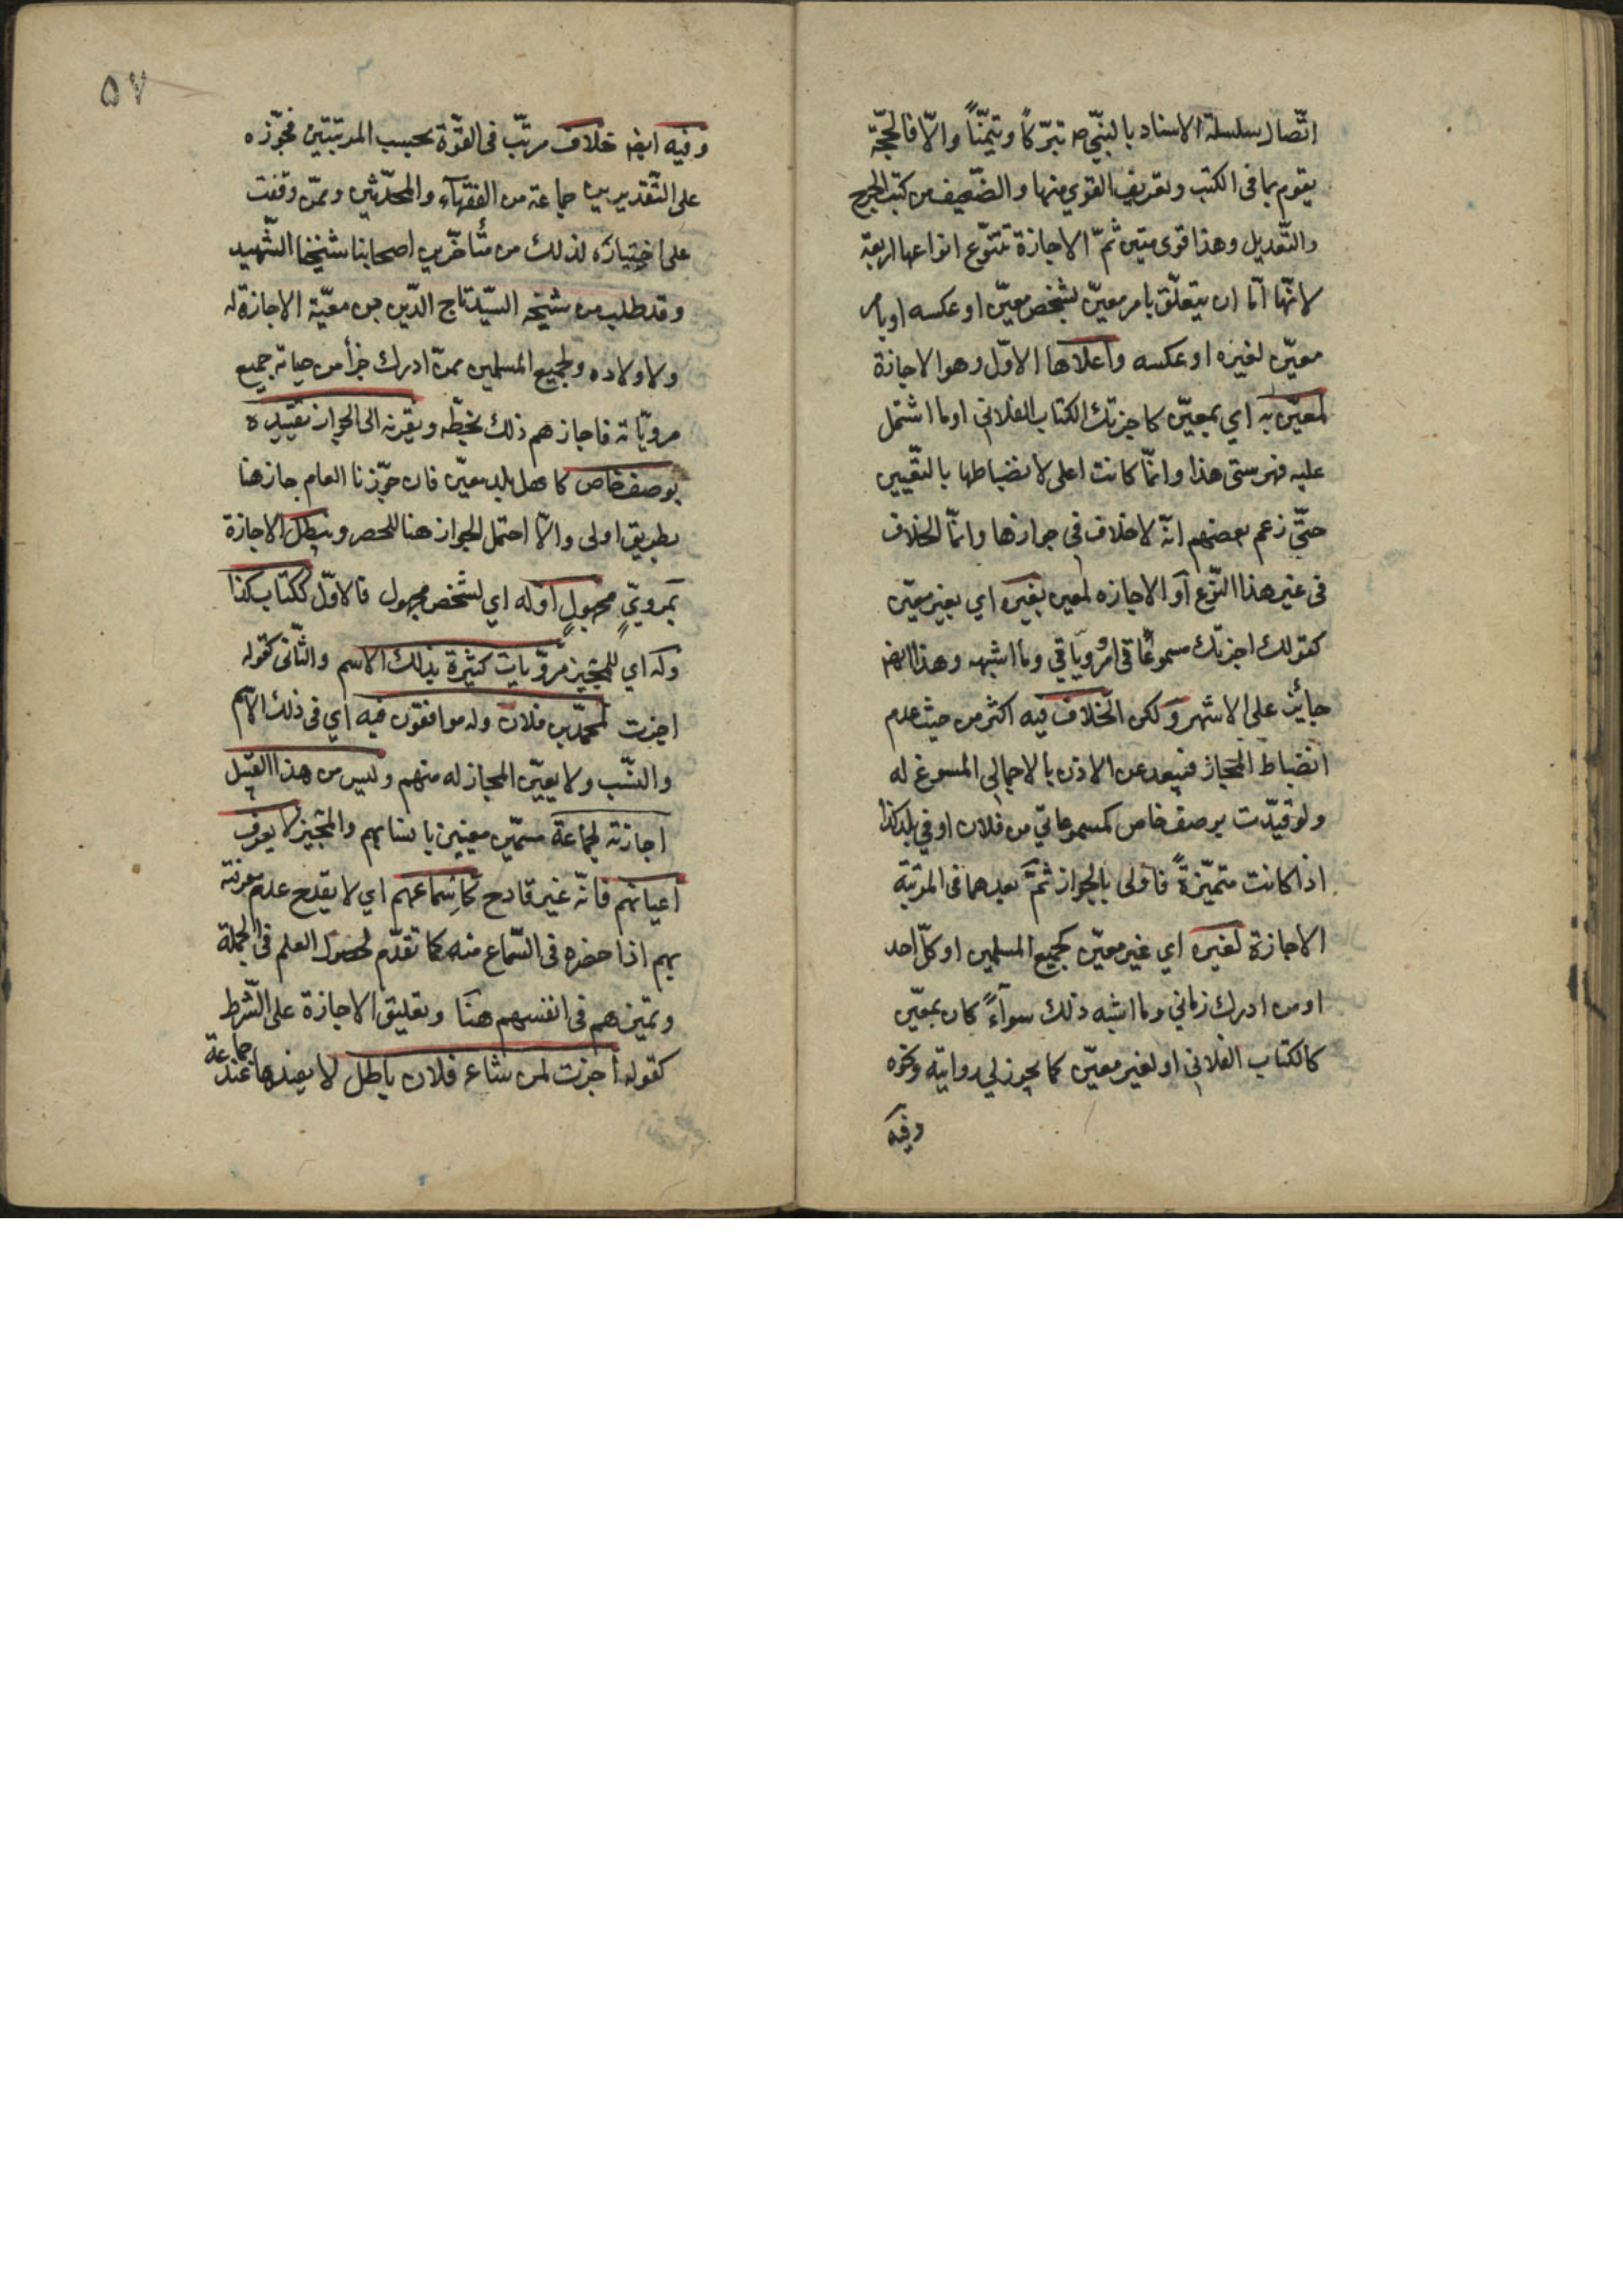 اتّصال سلسلة الاسناد بالنبّي ص تبرّكاً وتيمّناً والّا فالحجّة
يقوم بما في الكتب وتعريف القوي منها والضّعيف من كتب الجرح
والتّعديل وهذا قوى متين ثمّ الاجازة تتنوّع انواعها اربعة
لانّها امّا ان يتعلّق بامر معيّن لشخص معيّن او عكسه او بامر
معيّن لغيره او عكسه واعلاها الاوّل وهو الاجازة
لمعيّن به اي بمعيّن كاجزتك الكتاب الفلاني او ما اشتمل
عليه فهرستى هذا وانّما كانت اعلى لانضباطها بالتّعيين
حتّى زعم بعضهم انّه لا خلاف في جوازها وانّما الخلاف
في غير هذا النّوع او الاجازه لمعين بغيره اي بغير معيّن
كقولك اجزتك مسموعاتي او مروياتي وما اشبهه وهذا ايضا
جائز على الاشهر ولكن الخلاف فيه اكثر من حيث عدم
انضباط المجاز فيبعد عن الاذن بالاجمالي المسوغ له
ولو قيّدت بوصف خاص كمسموعاتي من فلان او في بلد كذا
اذا كانت متميّزةً فاولى بالجواز ثمّ بعدهما في المرتبة
الاجازة لغيره اي غير معيّن كجميع المسلمين او كلّ احد
او من ادرك زماني وما اشبه ذلك سوآءً كان بمعيّن
كالكتاب الفلاني او لغير معيّن كما يجوز لي روايته ونحوه
وفيه
٥٧
وفيه ايضا خلاف مرتّب في القوّة بحسب المرتبتين فجوّزه
على التّقديرين جماعة من الفقهآء والمحدّثين وممّن وقفت
على اختياره لذلك من متأخّري اصحابنا شيخنا الشّهيد
وقد طلب من شيخه السيّد تاج الدّين بن معيّة الاجازة له
ولاولاده ولجميع المسلمين ممن ادرك جزأ من حياته جميع
مرويّاته فاجازهم ذلك بخطّه ويقربه الى الجواز تقييده
بوصف خاص كاهل بلد معيّن فان جوّزنا العام جاز هنا
بطريق اولى والّا احتمل الجواز هنا للحصر وتبطل الاجازة
بمرويّ مجهولٍ او له اي لشخص مجهول فالاوّل ككتاب كذا
وله اي للمجيز مرويات كثيرة بذلك الاسم والثّاني كقوله
اجزت لمحمّد بن فلان وله موافقون فيه اي في ذلك الاسم
والنسّب ولا يعيّن المجاز له منهم وليس من هذا القبيل
اجازته لجماعة مسمّين معينين بانسابهم والمجيز لا يعرف
اعيانهم فانّه غير قادح كاسماعهم اي لا يقدح عدم معرفته
بهم اذا حضره في السّماع منه كما تقدّم لحصول العلم في الجملة
وتميزهم في انفسهم هنا وتعليق الاجازة على الشّرط
كقوله اجزت لمن شاء فلان باطل لا يفيدها عند
جماعة